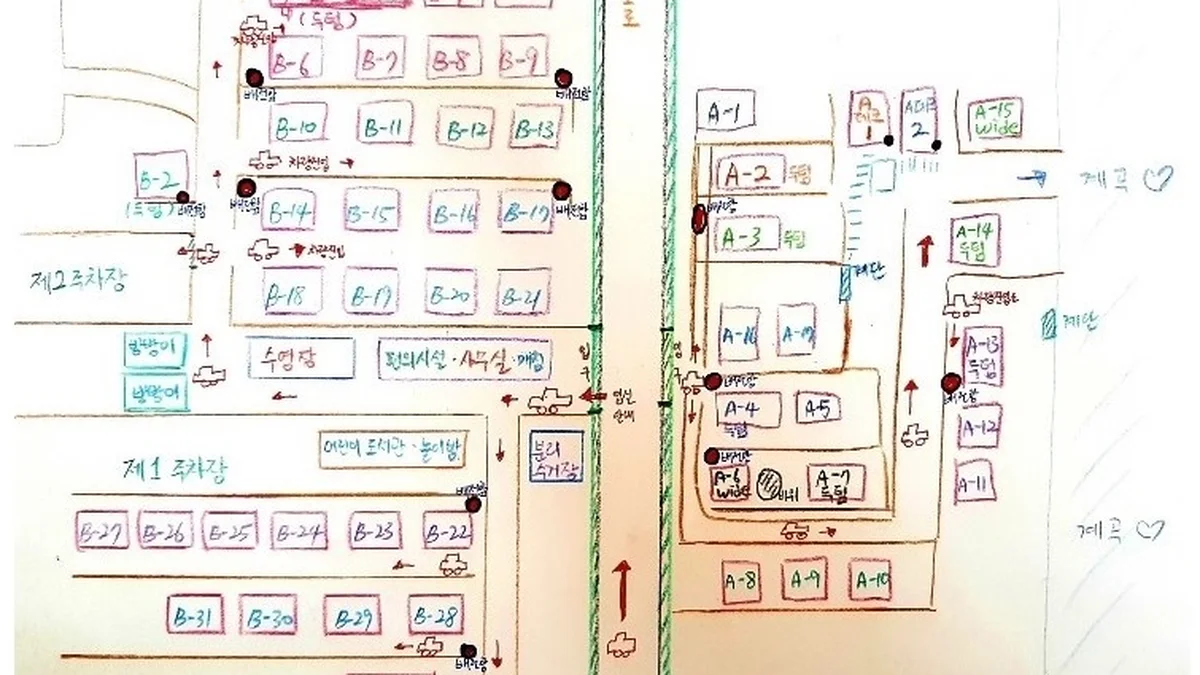 로
(독립)
B-6 B-7 B-8 B-9
배전함 배전함
B-10 B-11 B-12 B-13
차량진입
B-2
(독립) 배전함
배전함 배전함
B-14 B-15 B-16 B-17
차량진입
제2주차장
B-18 B-19 B-20 B-21
방방이
방방이
수영장
편의시설·사무실·매점
입구
제1주차장
어린이 도서관·놀이방
분리
수거장
배전함
B-27 B-26 B-25 B-24 B-23 B-22
B-31 B-30 B-29 B-28
배전함
A-1
A
데크
1
A데크
2
A-15
wide
A-2 독립
배전함
A-3 독립
계단
계곡♡
A-14
독립
차량진입로
계단
A-16 A-17
A-13
독립
배전함
입구
배전함
A-4
독립
A-5
A-12
배전함
A-6
wide
A-7
독립
A-11
계곡♡
A-8 A-9 A-10